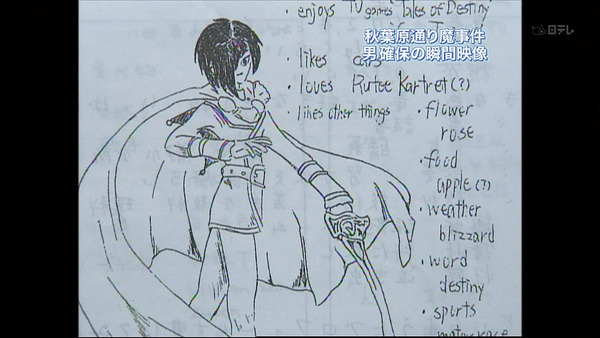 ・enjoys TV games Tales of Destiny
秋葉原通り魔事件
男確保の瞬間映像
日テレ
・likes cars
・loves Rutee Kartret(?)
・likes other things
・flower
rose
・food
apple(?)
・weather
blizzard
・word
destiny
・sports